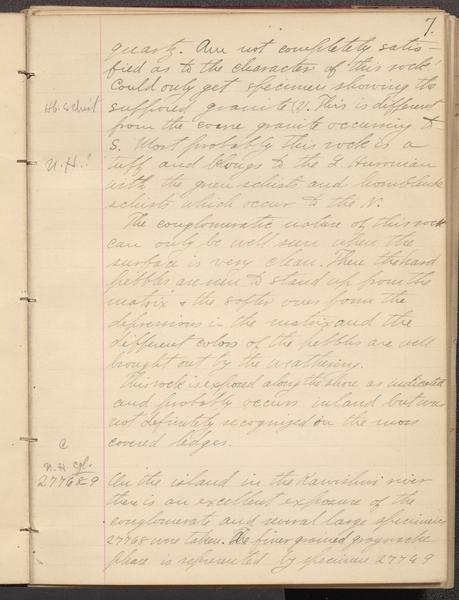 7.
quartz. Am not completely satis-
fied as to the character of this rock!
Could only get specimen showing the
Hb. schist
supposed granite (?). This is different
from the coarse granite occurring to
S. Most probably this rock is a
U.H.?
tuff and belongs to the L. Huronian
with the green schists and hornblende
schists which occur to the N.
The conglomeratic nature of this rock
can only be well seen when the
surface is very clean. Then the hard
pebbles are seen to stand up from the
matrix & the softer ones form the
depressions in the matrix and the
different colors of the pebbles are well
brought out by the weathering.
This rock is exposed along the shore as indicated
and probably occurs inland but was
not definitely recognized on the moss
covered ledges.
C
N.H. cgl.
27768-9
On the island in the Kawishiwi river
there is an excellent exposure of the
conglomerate and several large specimens
27768 were taken. The finer grained graywacke
phase is represented by specimen 27769